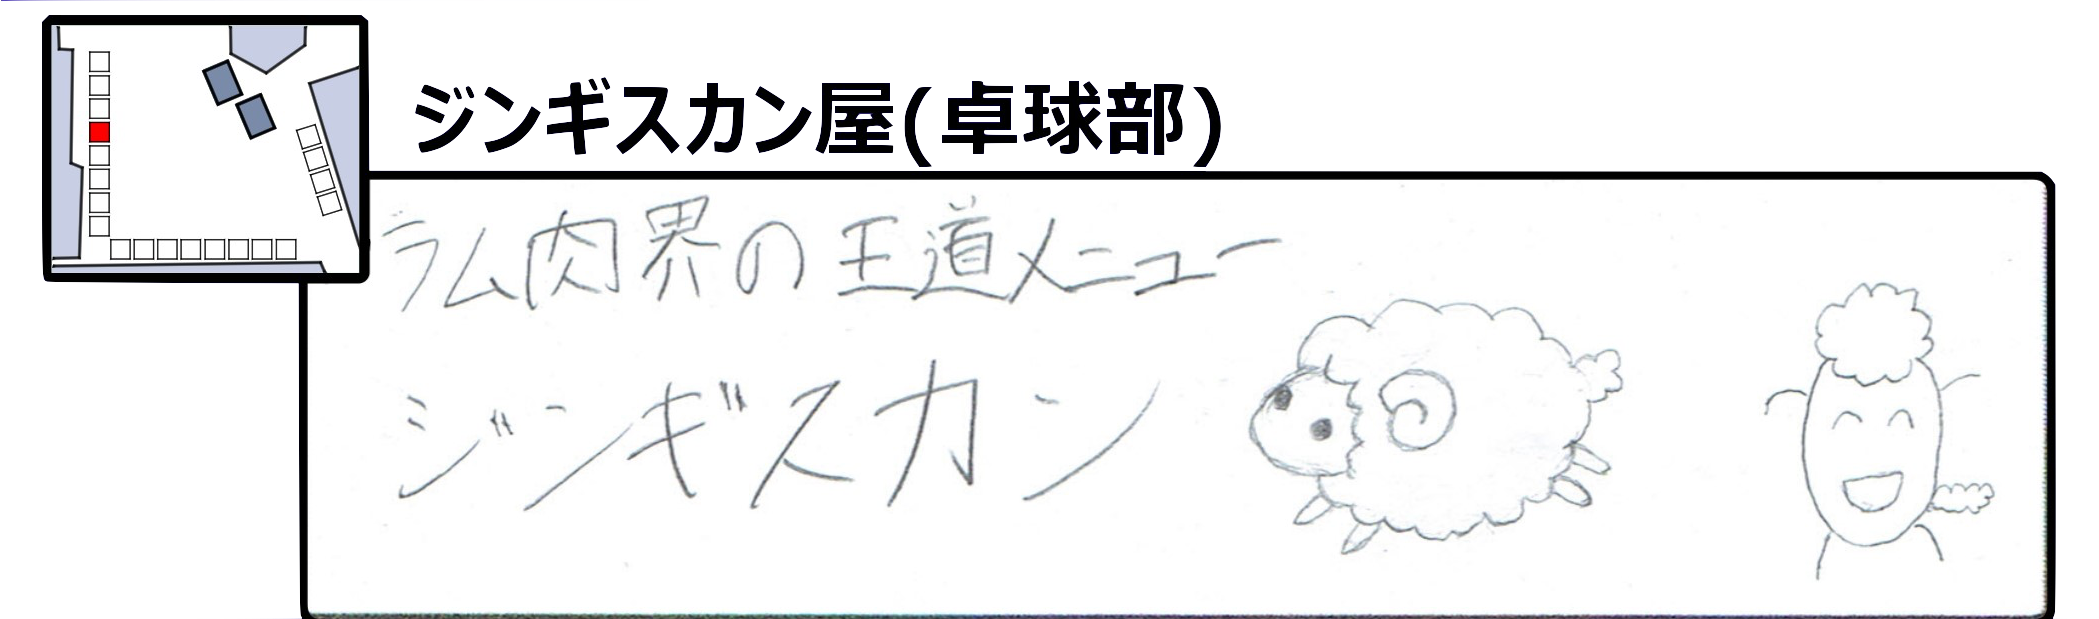 ジンギスカン屋(卓球部)
ラム肉界の王道メニュー
ジンギスカン